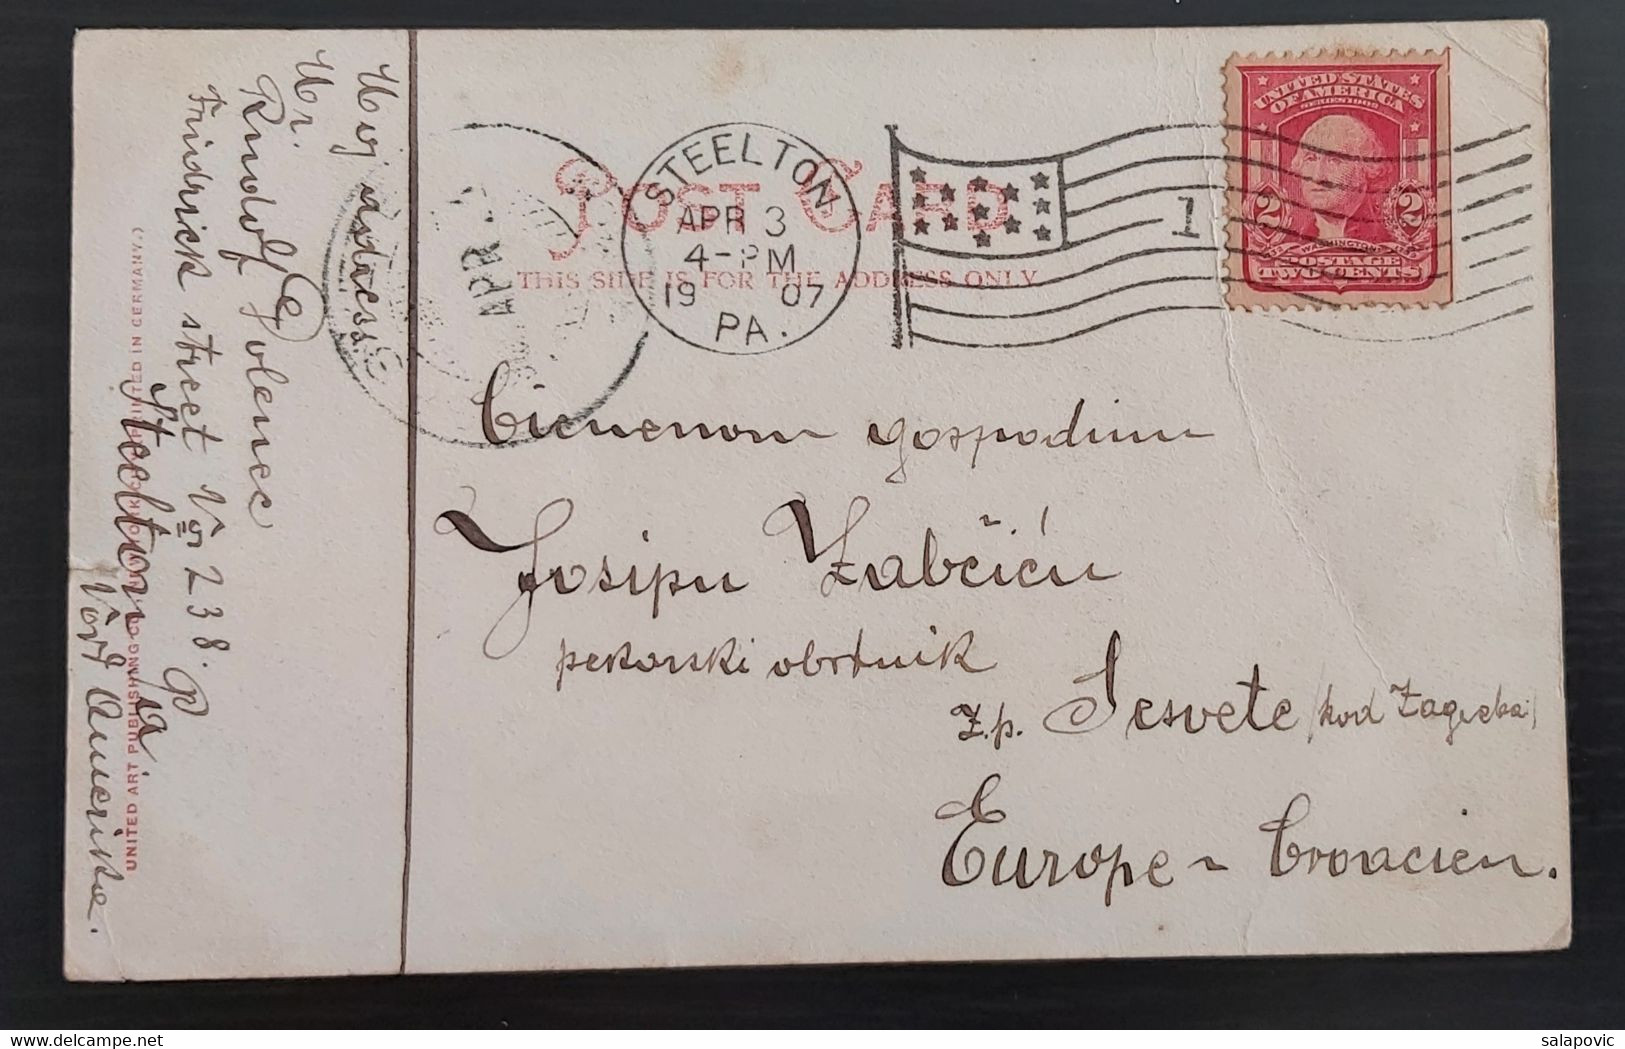 My adress:
Mr.
Rudolf Golenec
Fridrick street No 238.
Steelton Pa
Nord Amerika.
UNITED ART PUBLISHING CO., NEW YORK PRINTED IN GERMANY.)
APR
POST CARD
THIS SIDE IS FOR THE ADDRESS ONLY
STEELTON
APR 3
4-PM
1907
PA.
1
UNITED STATES
OF AMERICA
SERIES 1902
2 2
WASHINGTON
POSTAGE
TWO CENTS
Cienenom gospodinu
Josipu Žabčiću
pekarski obrtnik
z.p. Sesvete (kod Zagreba)
Europe - Croacien.
salapovic